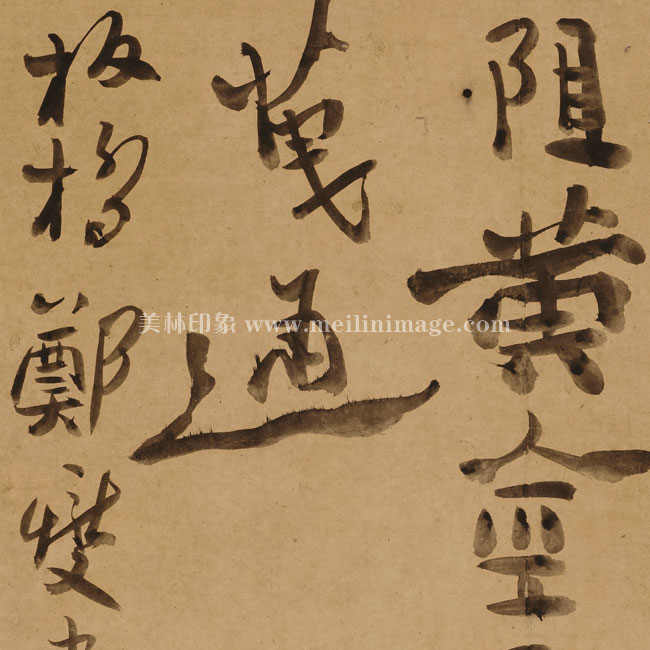 阻 金
通
板橋鄭燮
美林印象 www.meilinimage.com